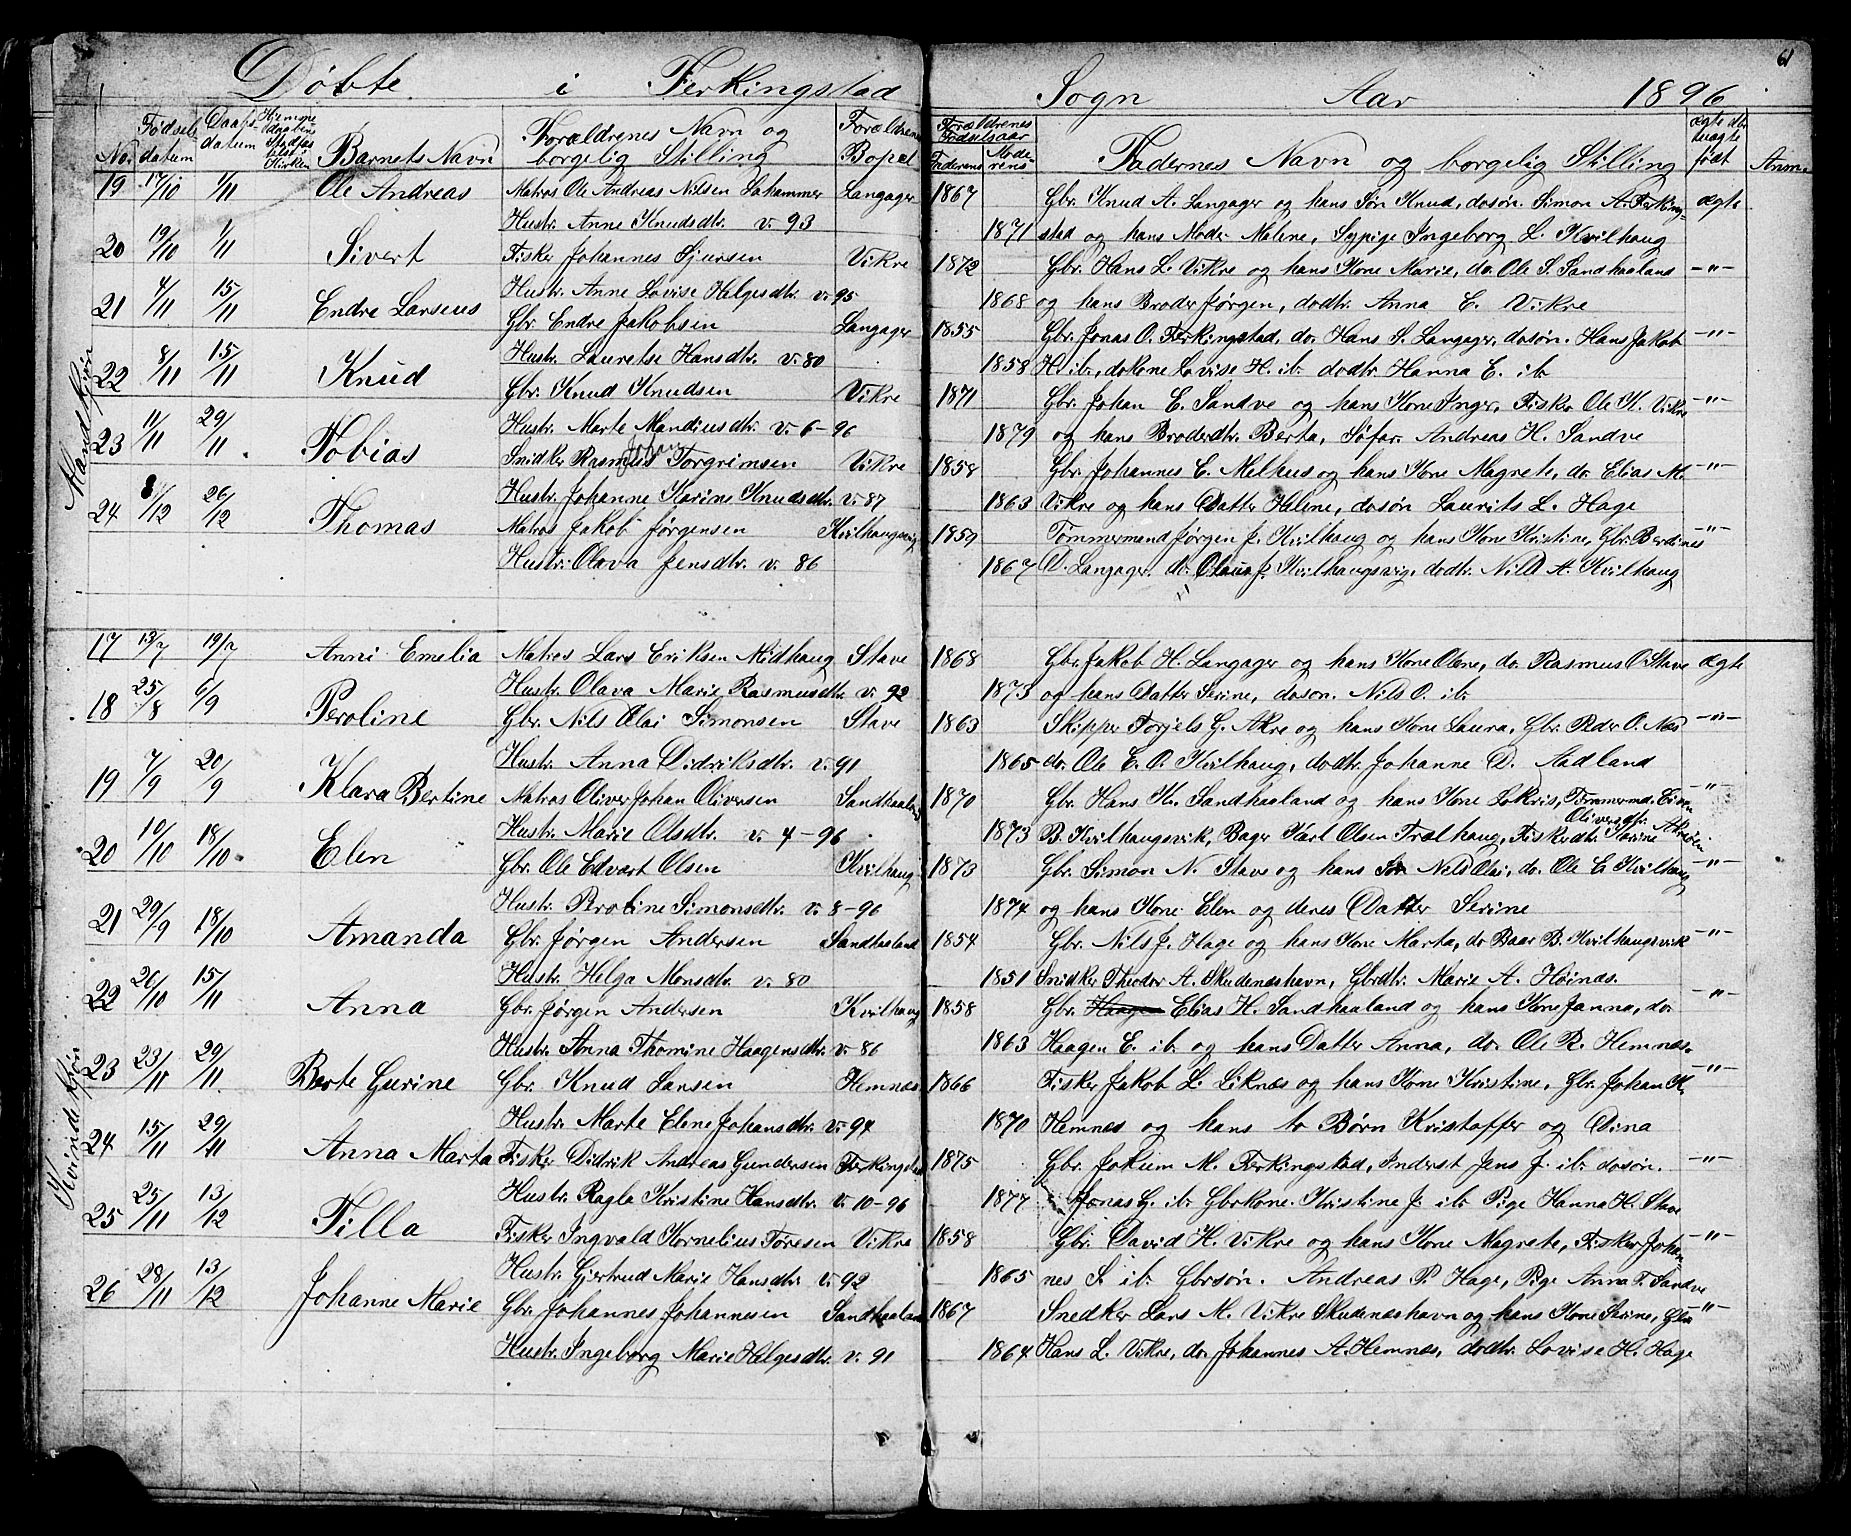 Døbte i Ferkingstad Sogn Aar 1896
61
No. Fødsels datum Daabs datum Barnets Navn Forældrenes Navn og borgelig Stilling Forældrenes Bopæl Forældrenes Fødselsaar Faderens Moderens Fadernes Navn og borgelig Stilling ægte el. uægte født Anm.
Mandkjøn
19 17/10 1/11 Ole Andreas Matros Ole Andreas Nilsen Langager 1867 Gbr. Knud A. Langager og hans Søn Knud, do søn. Simon A. Ferking- ægte
Hustr. Anne Knudsdtr. v. 93 1871 stad og hans Moder Malene, Sypige Ingeborg L. Kvilhaug
20 19/10 1/11 Sivert Fisker Johannes Sjursen Vikre 1872 Gbr. Hans L. Vikre og hans Kone Marie, do. Ole S. Sandhaaland -"-
Hustr. Anne Lovise Helgesdtr. v. 95 1868 og hans Broder Jørgen, do dtr. Anna E. Vikre
21 4/11 15/11 Endre Larseus Gbr. Endre Jakobsen Langager 1855 Gbr. Jonas O. Ferkingstad, do. Hans S. Langager, do søn. Hans Jakob -"-
Hustr. Lauretse Hansdtr. v. 80 1858 H. ib., do kone Lovise H. ib. do dtr. Hanna E. ib.
22 8/11 15/11 Knud Gbr. Knud Knudsen Vikre 1871 Gbr. Johan E. Sandve og hans Kone Inger, Fisker Ole K. Vikre -"-
Hustr. Marte Mandiusdtr. v. 6-96 1879 og hans Broderdtr. Berta, Søfar. Andreas H. Sandve
23 11/11 29/11 Tobias Snidker Rasmus Johan Torgrimsen Vikre 1858 Gbr. Johannes E. Melhus og hans Kone Magrete, do. Elias M. -"-
Hustr. Johanne Karine Knudsdtr. v. 87 1863 Vikre og hans Datter Helene, do søn Laurits L. Hage
24 8/12 26/12 Thomas Matros Jakob Jørgensen Kvilhaugsvig 1859 Tømmermand Jørgen J. Kvilhaug og hans Kone Kristine, Gbr. Berdines -"-
Hustr. Olava Jensdtr. v. 86 1867 D. Langager, do. Olaus J. Kvilhaugsvig, do dtr. A. Kvilhaug
Kvindekjøn
17 13/7 19/7 Anni Emelia Matros Lars Eriksen Midhaug Stave 1868 Gbr. Jakob H. Langager og hans Kone Olene, do. Rasmus O. Stave ægte
Hustr. Olava Marie Rasmusdtr. v. 92 1873 og hans Datter Serine, do søn. Nils O. ib.
18 25/8 6/9 Peroline Gbr. Nils Olai Simonsen Stave 1863 Skipper Torjels G. Akre og hans Kone Laura, Gbr. Peder O. Næs -"-
Hustr. Anna Didriksdtr. v. 91 1865 do. Ole E. O. Kvilhaug, do dtr. Johanne D. Aadland
19 7/9 20/9 Klara Bertine Matros Oliver Johan Oliversen Sandhaaland 1870 Gbr. Hans K. Sandhaaland og hans Kone Lokris, Tømmermd. -"-
Hustr. Marie Olsdtr. v. 4-96 1873 B. Kvilhaugsvik, Bager Karl Olsen Trælhaug, Fiskerdtr. Karine Oliversdtr.
20 10/10 18/10 Elen Gbr. Ole Edvart Olsen Kvilhaug 1873 Gbr. Simon N. Stave og hans Søn Nels Olai, do. Ole E. Kvilhaug -"-
Hustr. Peroline Simonsdtr. v. 8-96 1874 og hans Kone Elen og deres Datter Serine
21 29/9 18/10 Amanda Gbr. Jørgen Andersen Sandhaaland 1854 Gbr. Nils J. Hage og hans Kone Marta, do Baar B. Kvilhaugsvik -"-
Hustr. Helga Monsdtr. v. 80 1851 Snidker Theodor A. Skudeneshavn, Gbrdtr. Marie A. Høines.
22 26/10 15/11 Anna Gbr. Jørgen Andersen Kvilhaug 1858 Gbr. Haagen Elias H. Sandhaaland og hans Kone Janna, do. -"-
Hustr. Anna Thomine Haagensdtr. v. 86 1863 Haagen E. ib. og hans Datter Anna, do. Ole R. Hemnæs.
23 23/11 29/11 Berte Gurine Gbr. Knud Larsen Hemnæs 1866 Fisker Jakob L. Liknæs og hans Kone Kristine, Gbr. Johan K. -"-
Hustr. Marte Elene Johansdtr. v. 94 1870 Hemnes og hans to Børn Kristoffer og Dina
24 15/11 29/11 Anna Marta Fisker Didrik Andreas Gundersen Ferkingstad 1875 Gbr. Jokum M. Ferkingstad, Inderst Jens J. ib. do søn. -"-
Hustr. Ragla Kristine Hansdtr. v. 10-96 1877 Jonas G. ib. Gbrkone Kristine J. ib. Pige Hanna H. Stave
25 25/11 13/12 Tilla Fisker Ingvald Kornelius Tøresen Vikre 1858 Gbr. David H. Vikre og hans Kone Magrete, Fisker Johan- -"-
Hustr. Gjertrud Marie Hansdtr. v. 92 1865 nes S. ib. Gbrsøn. Andreas P. Hage, Pige Anna T. Sandve
26 28/11 13/12 Johanne Marie Gbr. Johannes Johannesen Sandhaaland 1867 Snedker Lars M. Vikre Skudeneshavn og hans Kone Serine, Gbr -"-
Hustr. Ingeborg Marie Helgesdtr. v. 91 1864 Hans L. Vikre, do. Johannes A. Hemnæs, do dtr. Lovise H. Hage